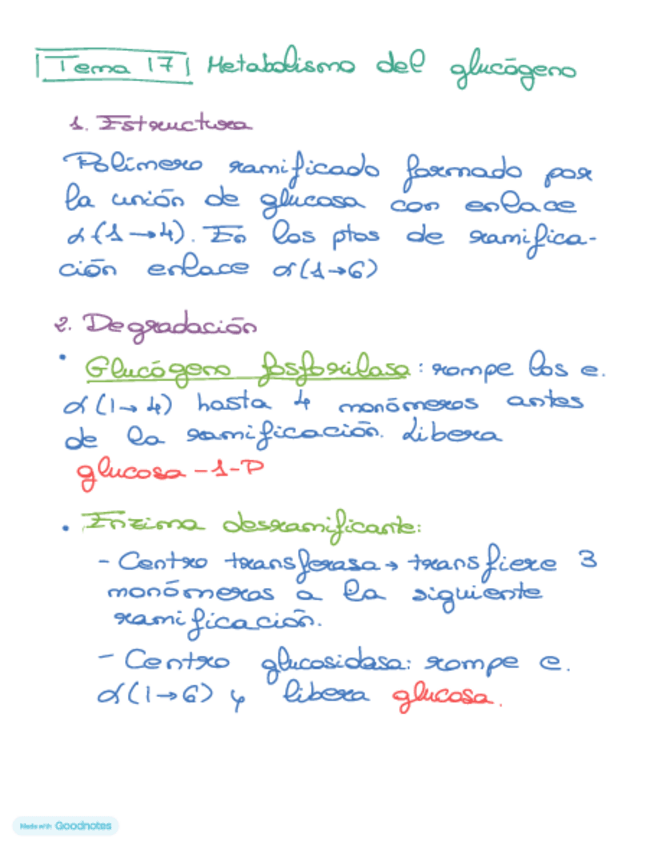 Tema 17 Metabolismo del glucógeno
1. Estructura
Polímero ramificado formado por
la unión de glucosa con enlace
α(1→4). En los ptos de ramifica-
ción enlace α(1→6)
2. Degradación
• Glucógeno fosforilasa: rompe los e.
α(1→4) hasta 4 monómeros antes
de la ramificación. Libera
glucosa-1-P
• Enzima desramificante:
- Centro transferasa → transfiere 3
monómeros a la siguiente
ramificación.
- Centro glucosidasa: rompe e.
α(1→6) y libera glucosa.
Made with Goodnotes